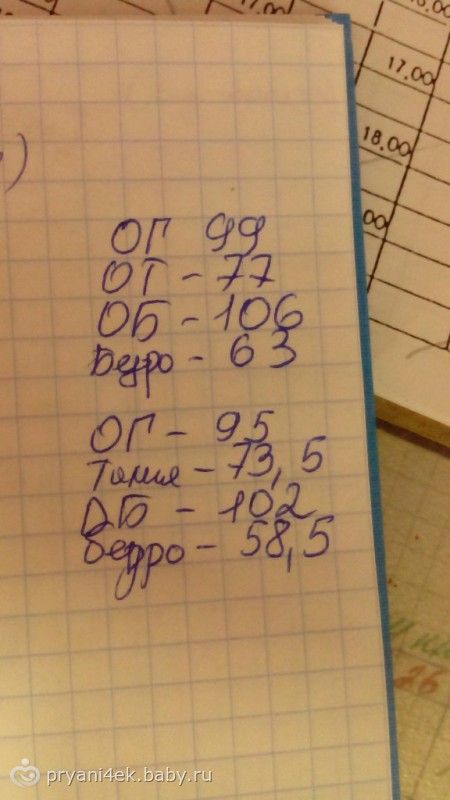 17.00
18.00
00
)
ОГ 99
ОТ - 77
ОБ - 106
Бедро - 63
ОГ - 95
Талия - 73,5
ОБ - 102
Бедро - 58,5
26
pryani4ek.baby.ru